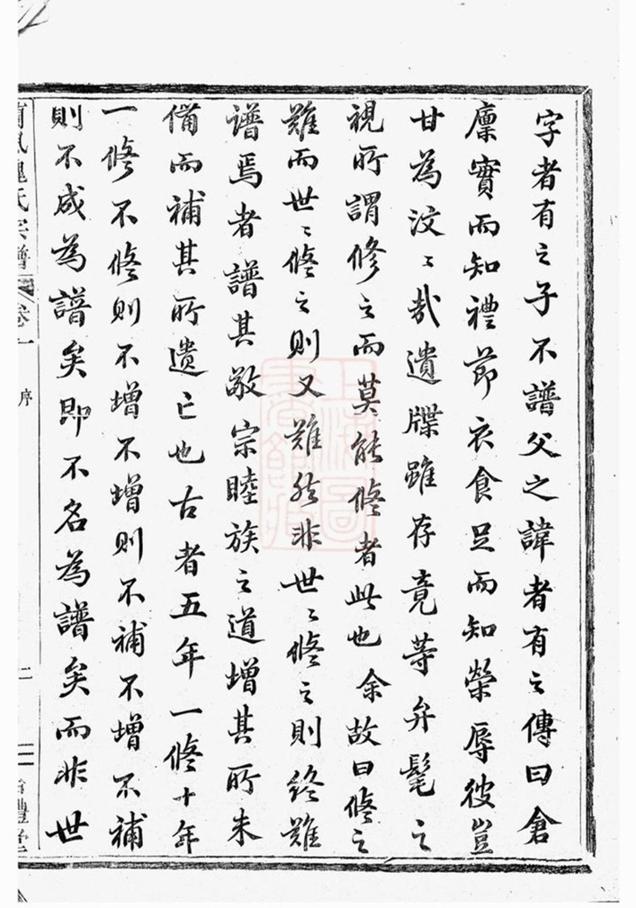 字者有之子不譜父之諱者有之傳曰倉
廩實而知禮節衣食足而知榮辱彼豈
甘為汶〻哉遺牒雖存竟等弁髦之
視所謂修之而莫能修者此也余故曰修之
難而世〻修之則又難然非世〻修之則終難
譜焉者譜其敬宗睦族之道增其所未
備而補其所遺亡也古者五年一修十年
一修不修則不增不增則不補不增不補
則不成為譜矣即不名為譜矣而非世
魏氏宗譜 卷一 序